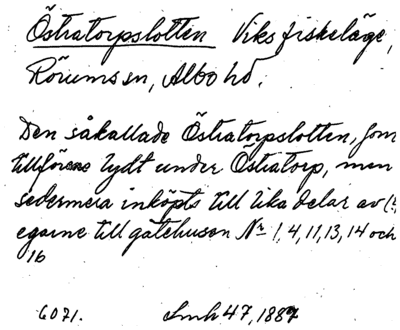 Östratorpslotten Viks fiskeläge,
Rörums sn, Albo hd.
Den såkallade Östratorpslotten, som
tillförene lydt under Östratorp, men
sedermera inköpts till lika delar av (
egarne till gatehusen Nr 1, 4, 11, 13, 14 och
16
6071. Smh 47, 1887